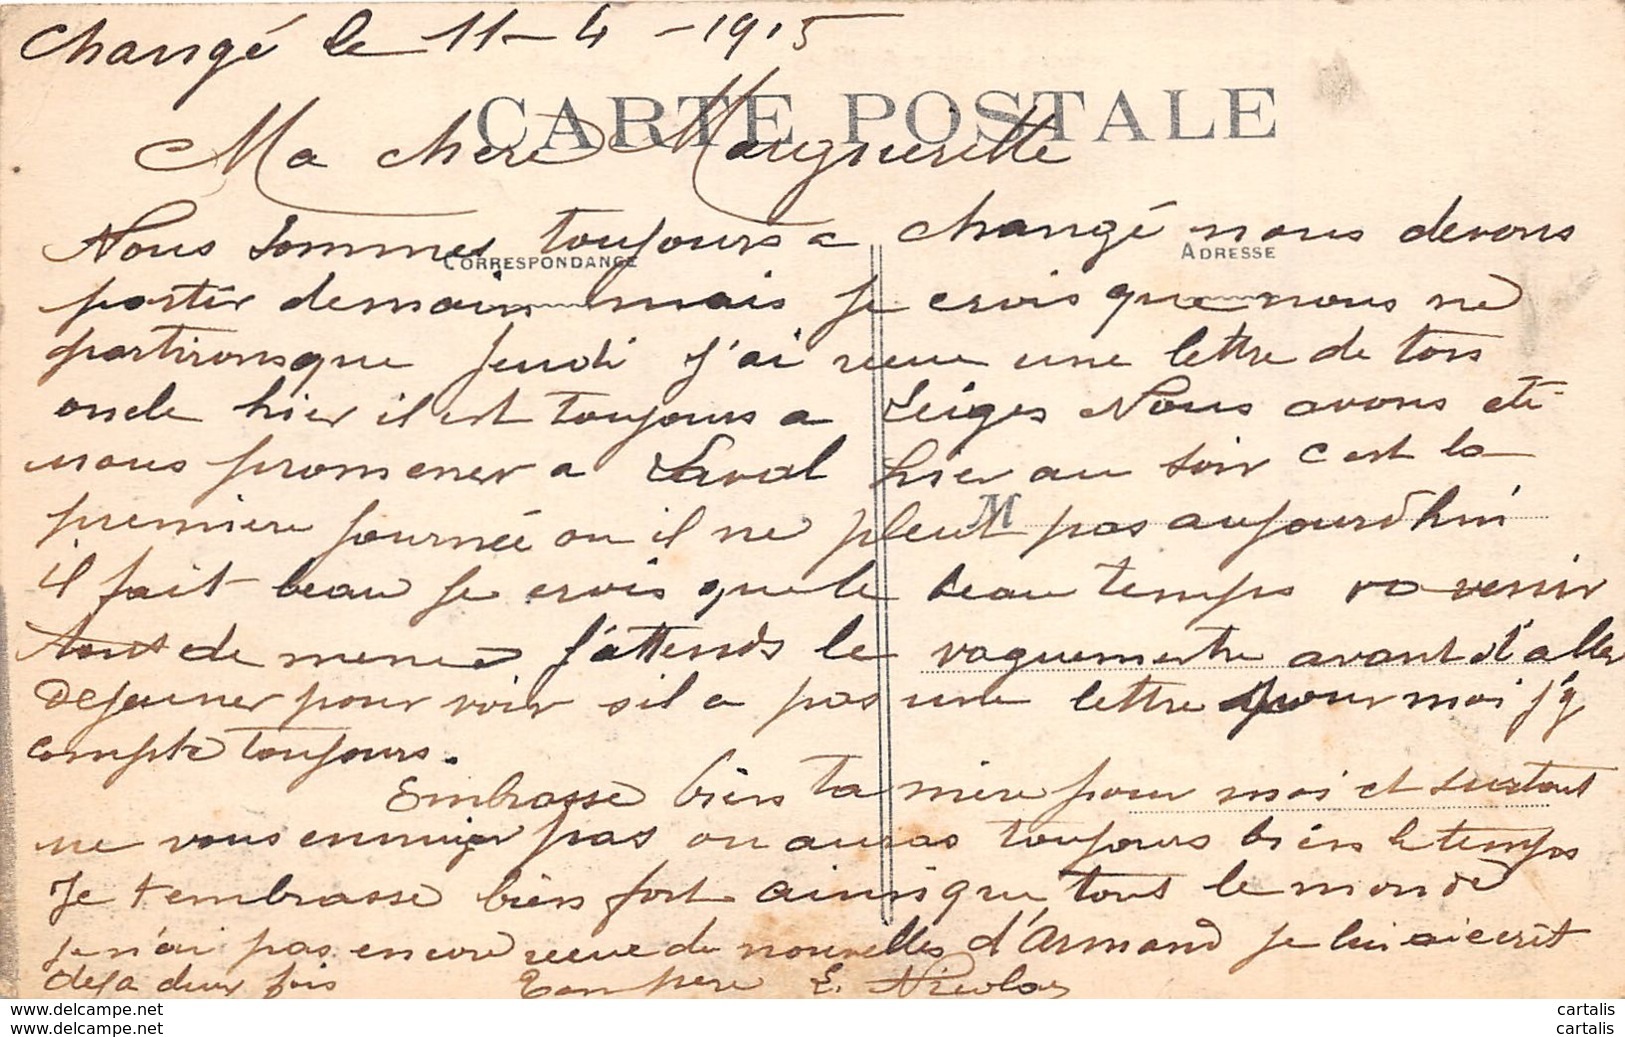 Changé le 11-4-1915
CARTE POSTALE
Ma chère Margueritte
Nous sommes toujours a changé nous devons
CORRESPONDANCE ADRESSE
partir demain mais je crois que nous ne
partirons que jeudi j'ai recue une lettre de ton
oncle hier il est toujours a Seiges Nous avons été
nous promener a Laval hier au soir c est la
première journée ou il ne pleut pas aujourd'hui
M
il fait beau je crois que le beau temps va venir
tout de meme j'attends le vaguemestre avant d'aller
dejeuner pour voir s il a pas une lettre pour moi j'y
compte toujours.
Embrasse bien ta mère pour moi et surtout
ne vous ennuiyer pas on auras toujours bien le temps
Je t embrasse bien fort ainsi que tout le monde
je n'ai pas encore recue de nouvelles d'Armand je lui ai ecrit
deja deux fois Ton pere E. Nicolas
www.delcampe.net cartalis
www.delcampe.net cartalis